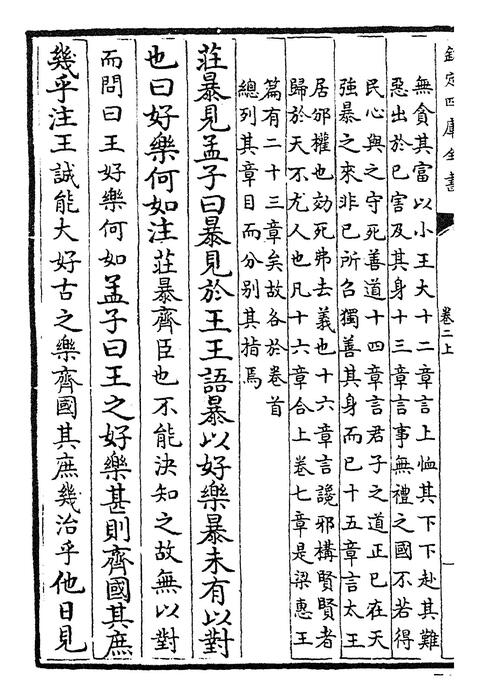 欽定四庫全書
卷二上
一
無貪其富以小王大十二章言上恤其下下赴其難
惡出於已害及其身十三章言事無禮之國不若得
民心與之守死善道十四章言君子之道正已在天
強暴之來非已所召獨善其身而已十五章言太王
居邠權也効死弗去義也十六章言讒邪構賢賢者
歸於天不尤人也凡十六章合上卷七章是梁惠王
篇有二十三章矣故各於卷首
總列其章目而分别其指焉
莊暴見孟子曰暴見於王王語暴以好樂暴未有以對
也曰好樂何如注莊暴齊臣也不能決知之故無以對
而問曰王好樂何如孟子曰王之好樂甚則齊國其庶
幾乎注王誠能大好古之樂齊國其庶幾治乎他日見